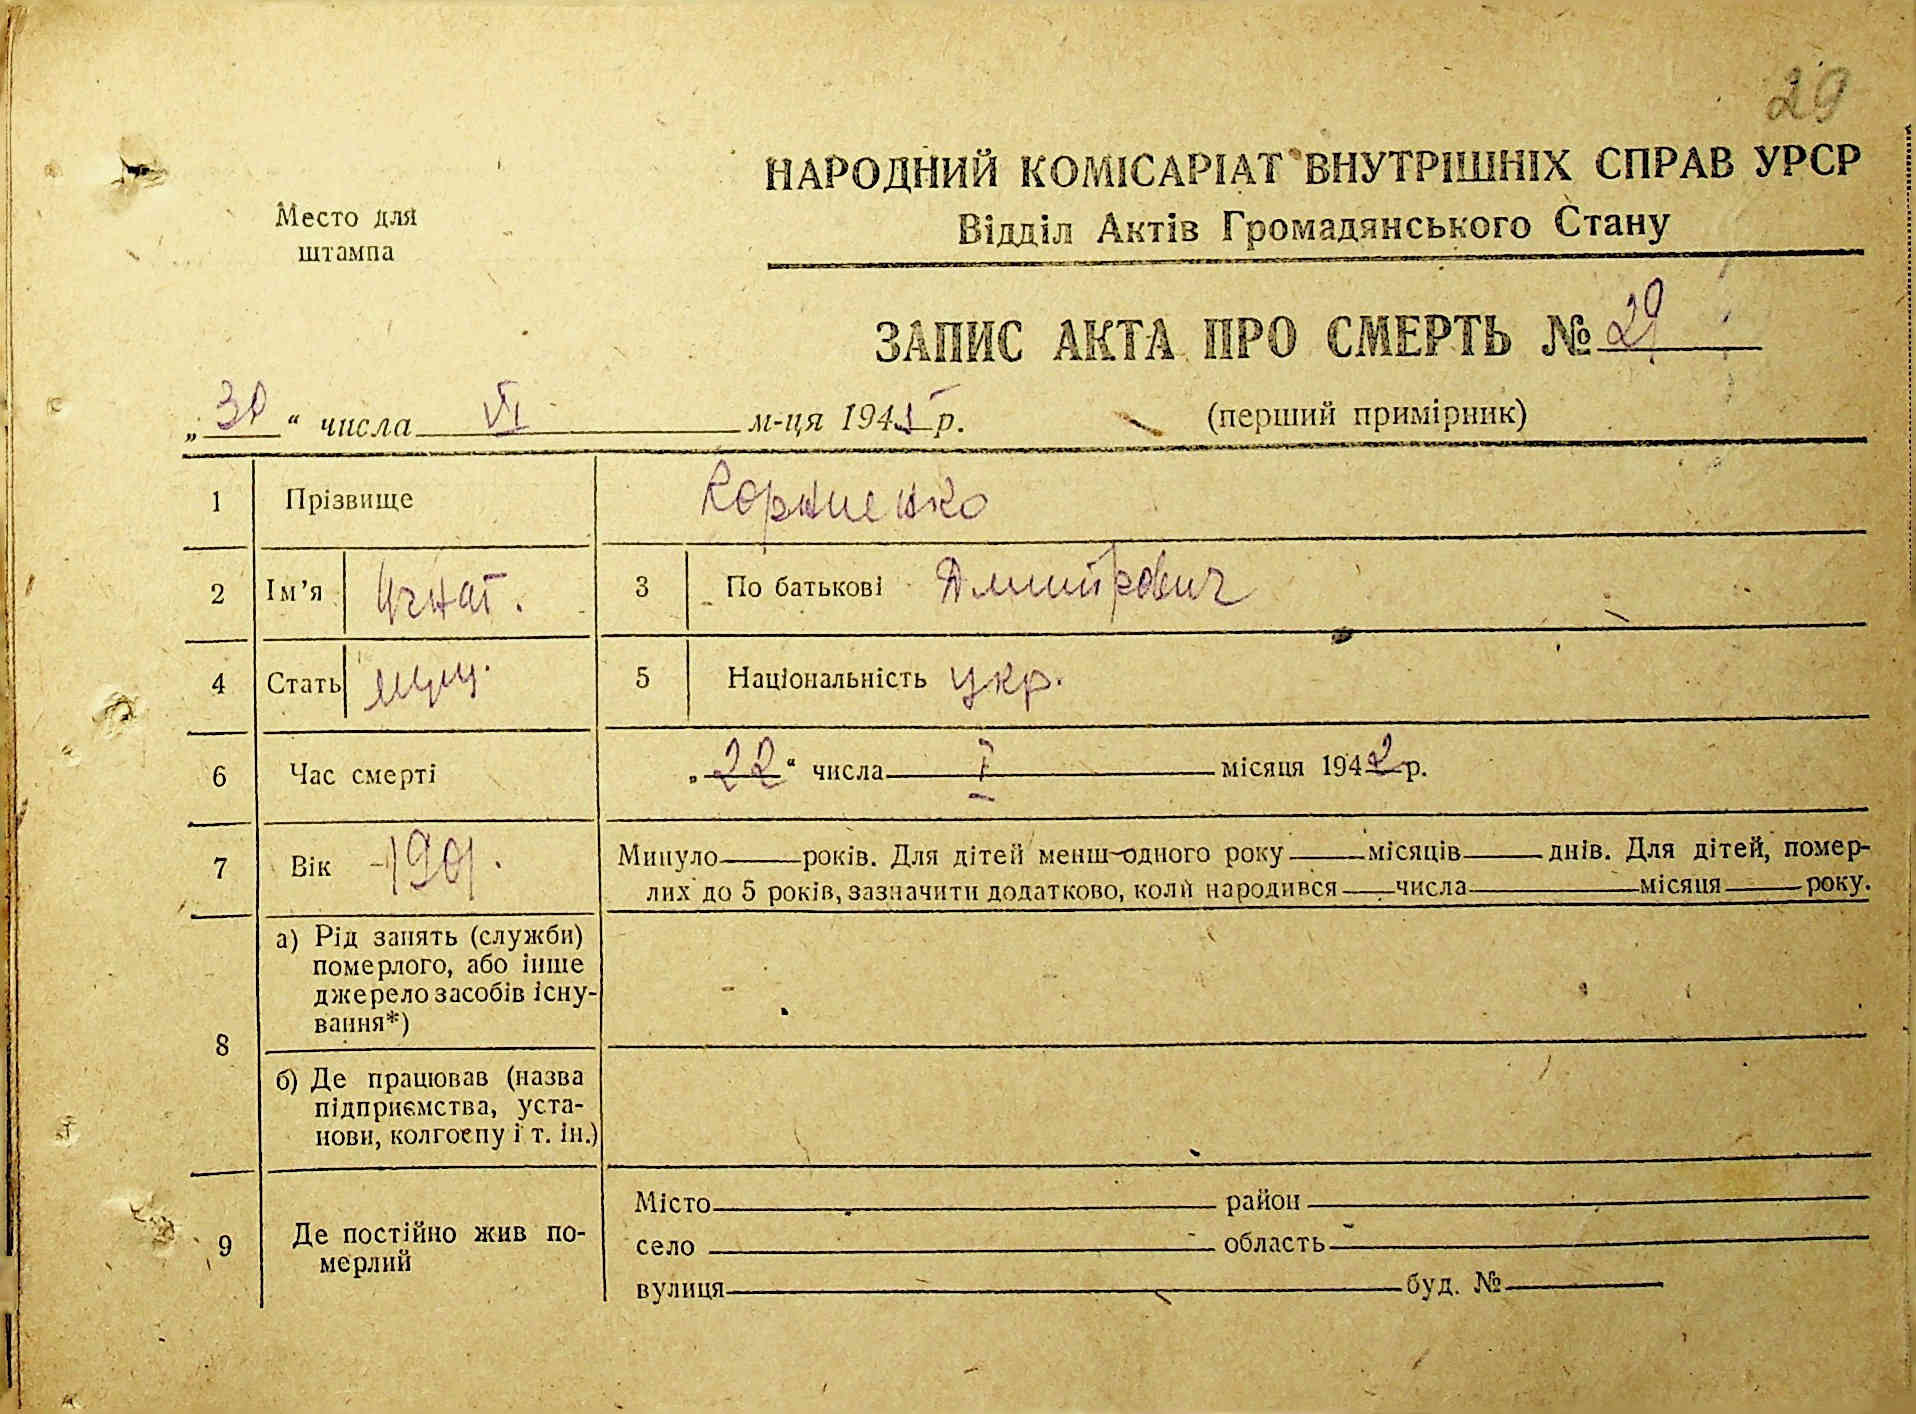 29
НАРОДНИЙ КОМІСАРІАТ ВНУТРІШНІХ СПРАВ УРСР
Відділ Актів Громадянського Стану
Место для
штампа
ЗАПИС АКТА ПРО СМЕРТЬ № 29
„30“ числа VI м-ця 1945 р.
(перший примірник)
1 Прізвище Корниенко
2 Ім’я Игнат. 3 По батькові Дмитрович
4 Стать муж. 5 Національність укр.
6 Час смерті „22“ числа I місяця 1942 р.
7 Вік 1901.
Минуло років. Для дітей менш одного року місяців днів. Для дітей, помер-
лих до 5 років, зазначити додатково, коли народився числа місяця року.
8 а) Рід занять (служби)
померлого, або інше
джерело засобів існу-
вання*)
б) Де працював (назва
підприємства, уста-
нови, колгоспу і т. ін.)
9 Де постійно жив по-
мерлий
Місто район
село область
вулиця буд. №